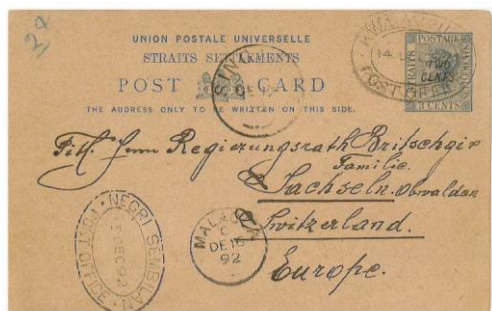 UNION POSTALE UNIVERSELLE
STRAITS SETTLEMENTS
POST CARD
THE ADDRESS ONLY TO BE WRITTEN ON THIS SIDE.
STRAITS POSTAGE
TWO
CENTS
3 CENTS
POST OFFICE
Tit. Herrn Regierungsrath Britschgi
Familie.
Sachseln. Obwalden
Switzerland.
Europe.
NEGRI SEMBILAN
15 DEC 92
POST OFFICE
MALACCA
C
DE 16
92